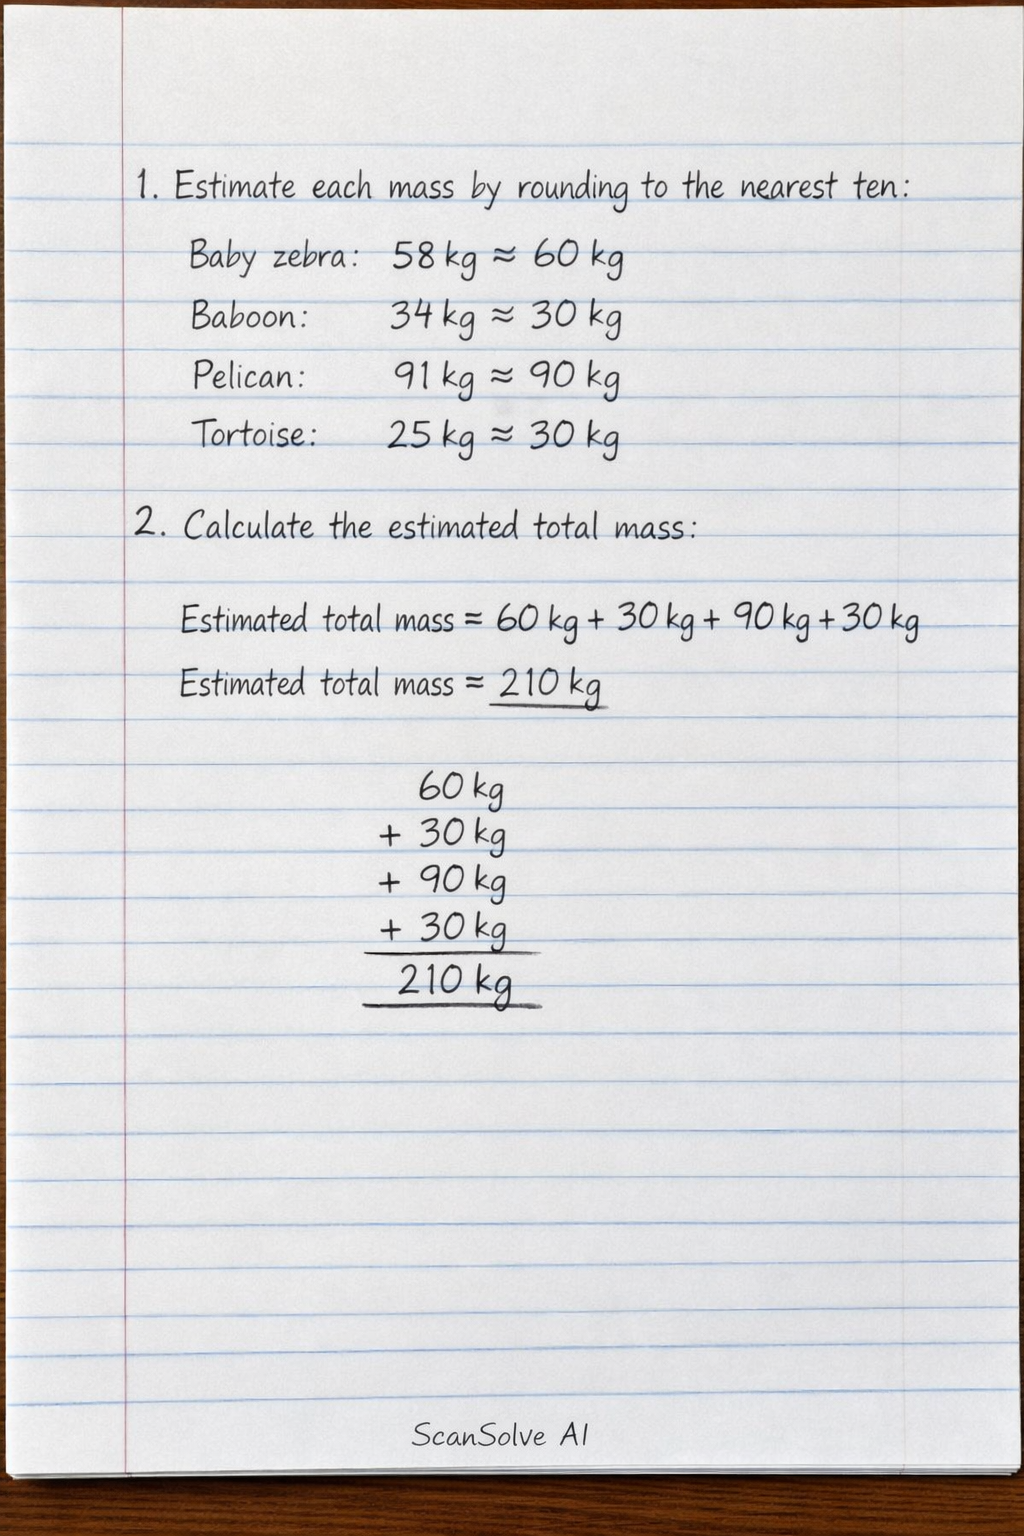 1. Estimate each mass by rounding to the nearest ten:
Baby zebra: 58 kg ≈ 60 kg
Baboon: 34 kg ≈ 30 kg
Pelican: 91 kg ≈ 90 kg
Tortoise: 25 kg ≈ 30 kg
2. Calculate the estimated total mass:
Estimated total mass = 60 kg + 30 kg + 90 kg + 30 kg
Estimated total mass = 210 kg
60 kg
+ 30 kg
+ 90 kg
+ 30 kg
210 kg
ScanSolve AI